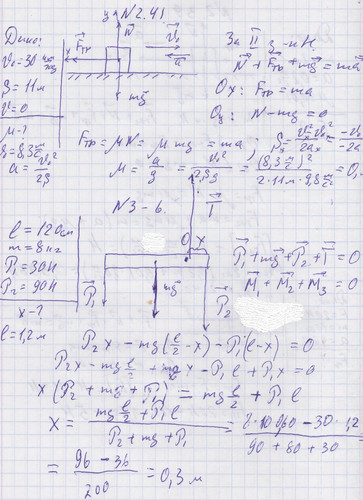 y N2.41
Дано:
V₀=30 км/год
S=11м
V=0
μ-?
V₀=8,3 м/с
a=V₀²/2S
x Fтр N V₀ a
mg
За II з-н Н.
N+Fтр+mg=ma
Ox: Fтр=ma
Oy: N-mg=0
Fтр=μN=μmg=ma;
μ=a/g=V₀²/2Sg=(8,3 м/с)²/2·11м·9,8 м/с²=0,
N3-6.
l=120см
m=8кг
P₁=30Н
P₂=90Н
x-?
l=1,2м
O x T
P₁ mg P₂
P₁+mg+P₂+T=0
M₁+M₂+M₃=0
P₂x-mg(l/2-x)-P₁(l-x)=0
P₂x-mg l/2+mgx-P₁l+P₁x=0
x(P₂+mg+P₁)=mg l/2+P₁l
x=(mg l/2+P₁l)/(P₂+mg+P₁)=
90+80+30
=(96-36)/200=0,3м